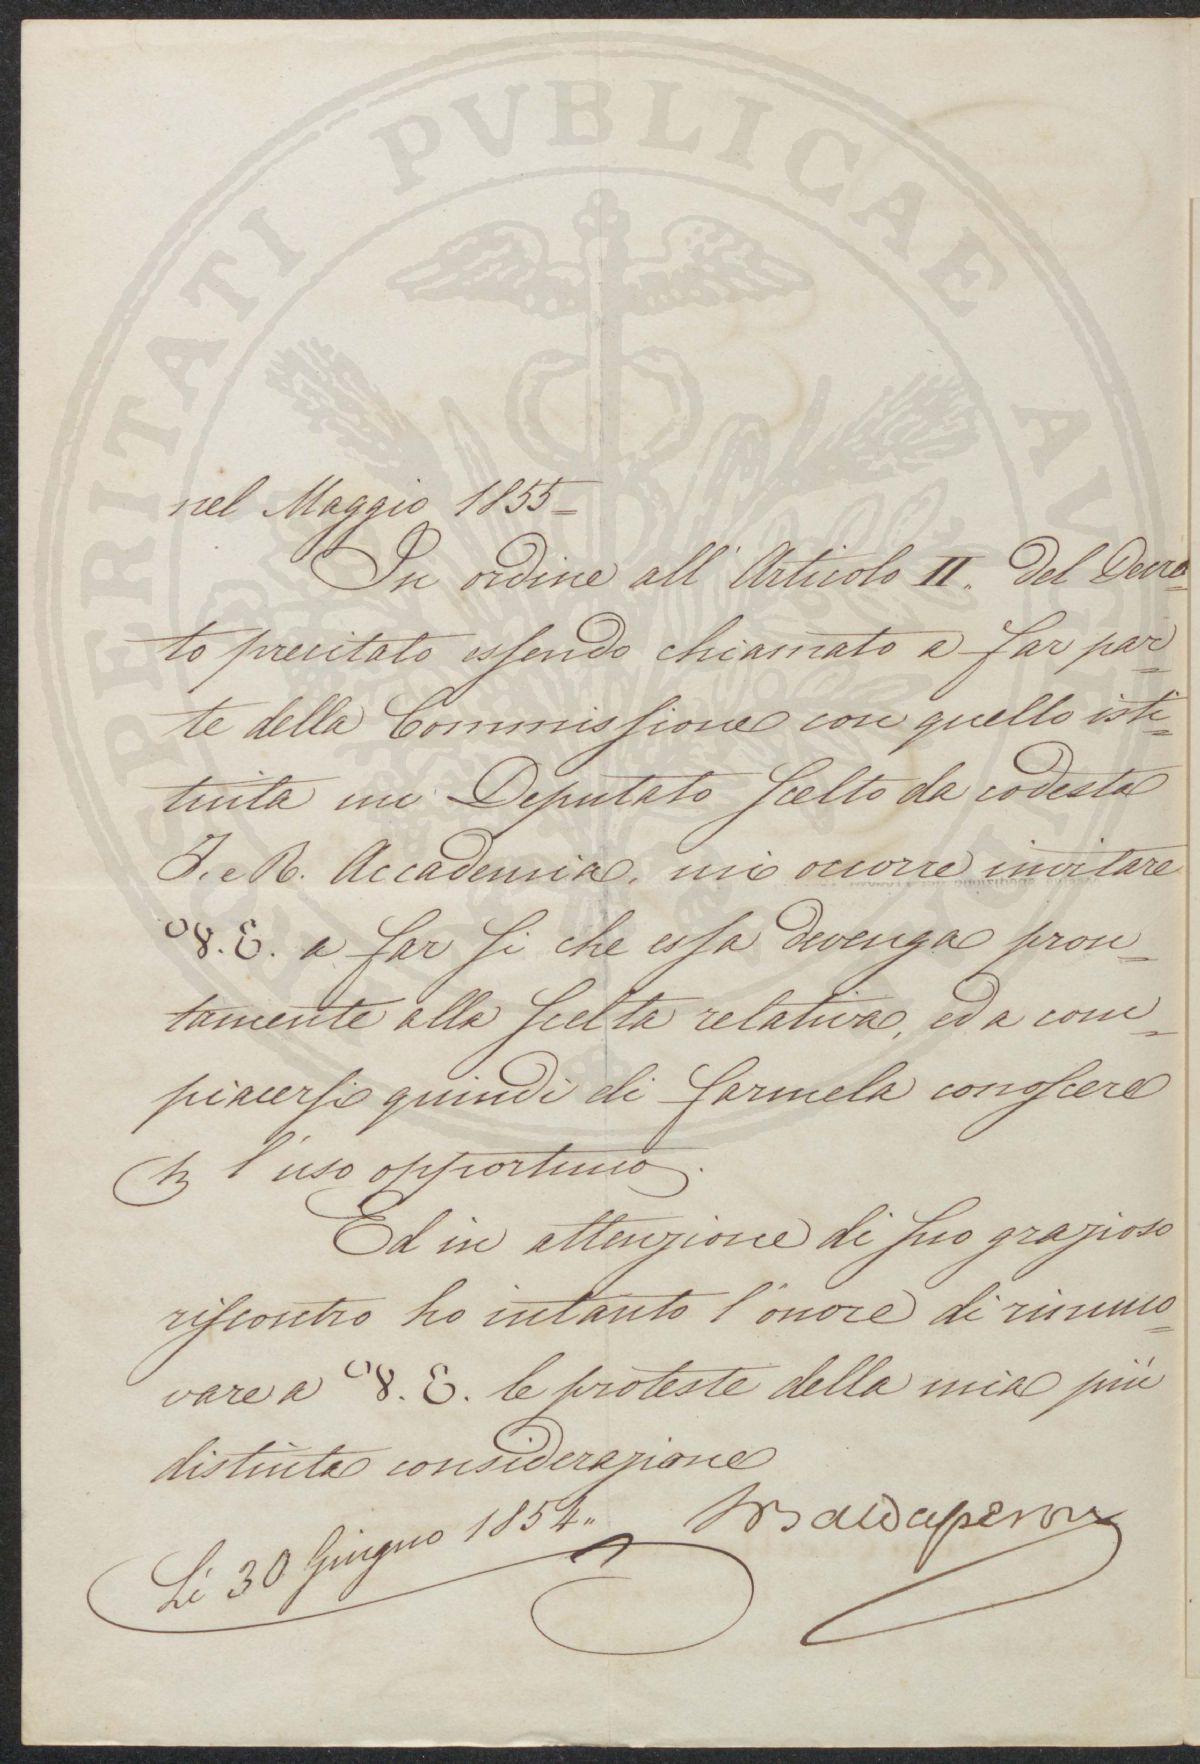 PROSPERITATI PVBLICAE AVGENDAE
nel Maggio 1855=
In ordine all' Articolo II. del Decre=
to precitato essendo chiamato a far par=
te della Commissione con quello isti=
tuita un Deputato scelto da codesta
I. e R. Accademia, mi occorre invitare
V. E. a far si che essa devenga pron=
tamente alla scelta relativa, ed a com=
piacersi quindi di farmela conoscere
p l'uso opportuno.
Ed in attenzione di suo grazioso
riscontro ho intanto l'onore di rinnuo=
vare a V. E. le proteste della mia più
distinta considerazione
Li 30 Giugno 1854..